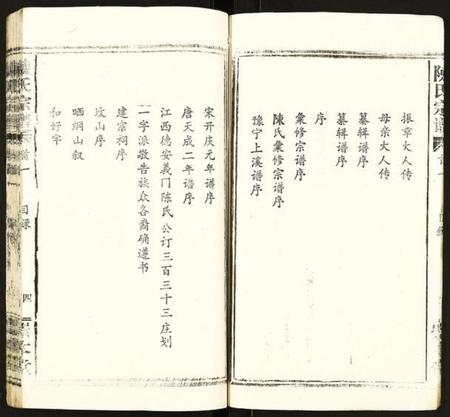 陳氏宗譜
振章大人传
母亲大人传
纂辑谱序
纂辑谱序
序
彙修宗谱序
陳氏彙修宗谱序
豫宁上溪谱序
宋开庆元年谱序
唐天成二年谱序
江西德安義门陈氏公订三百三十三庄划
一字派敬告族众各裔确遵书
建宗祠序
坟山序
晒綱山叙
和好字
氏宗
目録
四